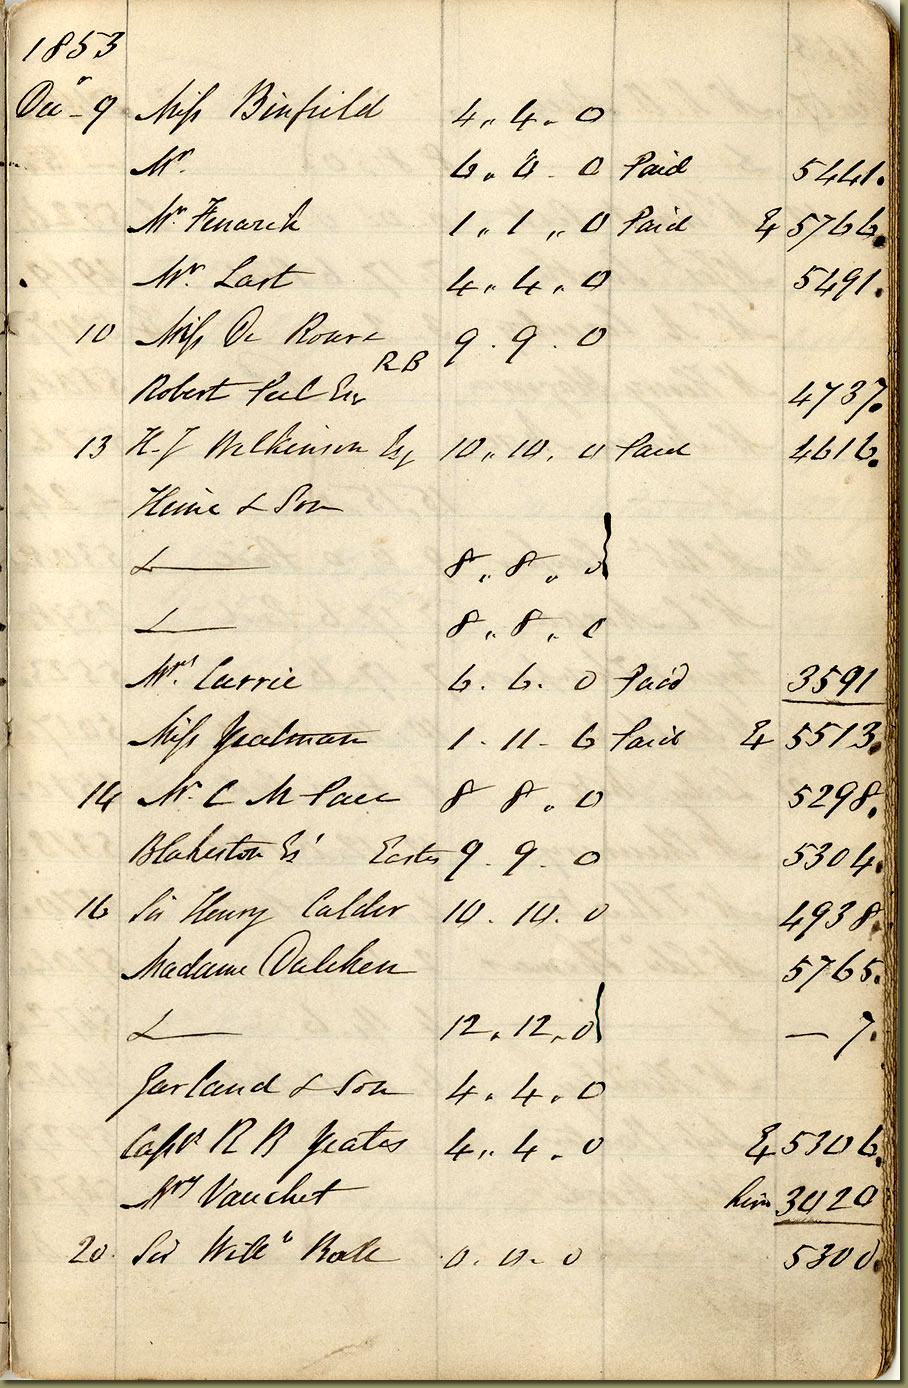 1853
Decr 9 Miss Binfield 4 " 4 " 0
Mr. 6 " 6 - 0 Paid 5441.
Mr 1 " 1 " 0 Paid & 5766.
Mr. Last 4 " 4 " 0 5491.
10 Miss De 9 . 9 . 0
RB
Robert Peel Esq 4737.
13 H J Wilkinson Esq 10 " 10 " 0 Paid 4616.
& Son
& 8 " 8 " 0
& 8 " 8 " 0
Mrs. Currie 6 . 6 . 0 Paid 3591
Miss Yealman 1 - 11 - 6 Paid & 5513.
14 Mr. C M 8 8 " 0 5298.
Blakeston Esr 9 . 9 . 0 5304.
16 Sir Henry Calder 10 . 10 . 0 4938.
Madame 5765.
& 12 . 12 . 0 — 7.
Garland & Son 4 . 4 . 0
Captn R B Yeates 4 " 4 . 0 & 5306.
Mrs Vauchet 3020
20. Sir Willm 0 . 0 . 0 5300.